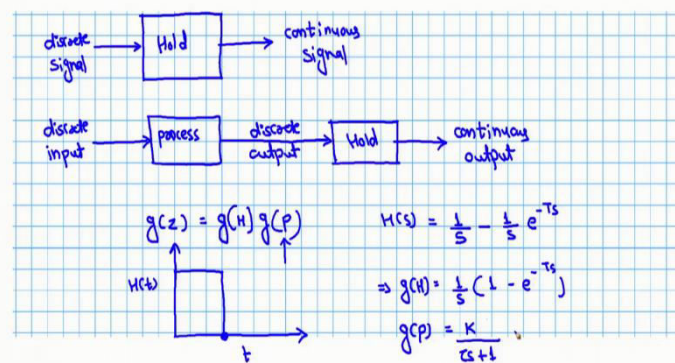 discrete signal
Hold
continuous signal
discrete input
process
discrete output
Hold
continuous output
g(z) = g(H) g(p)
H(s) = 1/s - 1/s e^-Ts
H(t)
t
⇒ g(H) = 1/s (1 - e^-Ts)
g(p) = K/τs+1